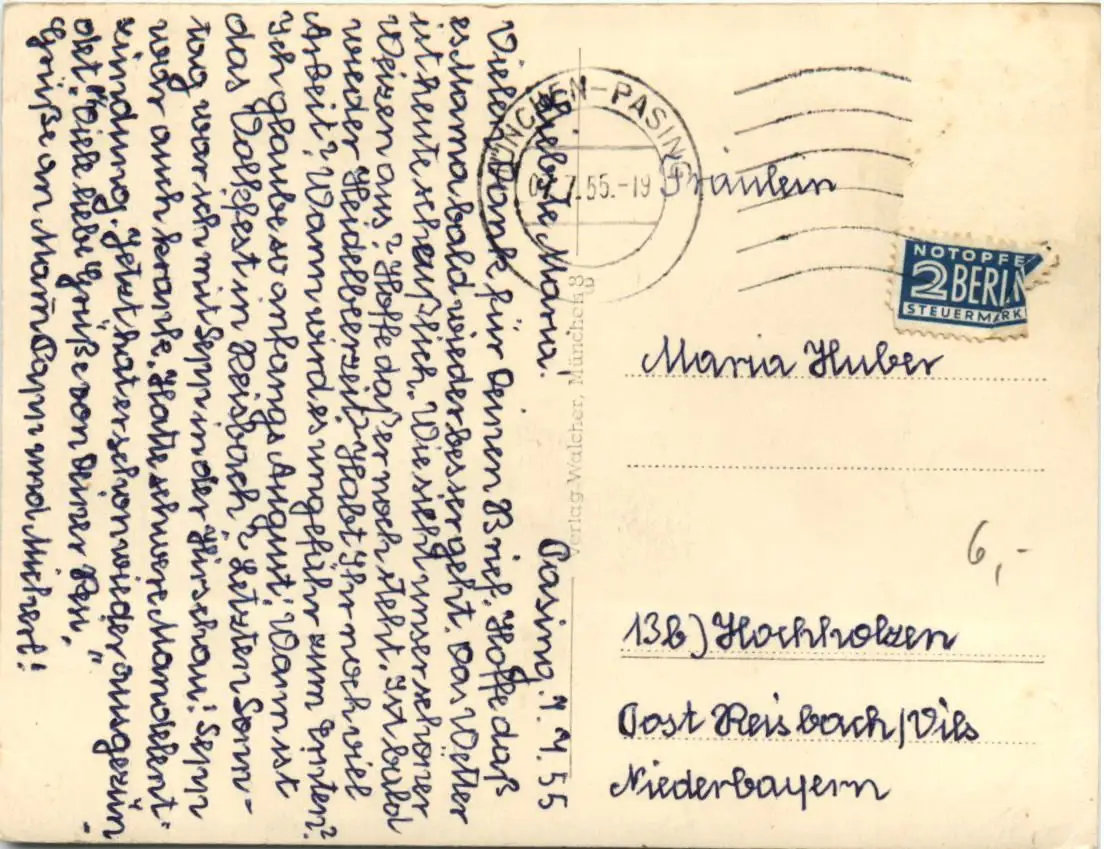 Pasing, 7. 7. 55
Liebste Maria.
Vielen Dank für Deinen Brief. Hoffe daß
es Mama bald wieder besser geht. Das Wetter
ist heute scheußlich. Wie sieht unser schöner
Weizen aus? Hoffe daß er noch steht. Ist bald
wieder Heidelbeerzeit? Habt Ihr noch viel
Arbeit? Wann wird es ungefähr zum Ernten?
Ich glaube so anfangs August. Wann ist
das Volksfest in Reisbach? Letzten Sonn-
tag war ich mit Sepp in der Hirschau! Sepp
war auch krank. Hatte schwere Mandelent-
zündung. Jetzt hat er schon wieder ausgezün-
det." Viele liebe Grüße von Deiner Resi.
Grüße an Mam Papp und Micherl!
MÜNCHEN-PASING
7.55.-19
Verlag Walcher, München 8
NOTOPFE
2 BERLIN
STEUERMARK
Fräulein
Maria Huber
6,-
13b) Hochholzen
Post Reisbach/Vils
Niederbayern